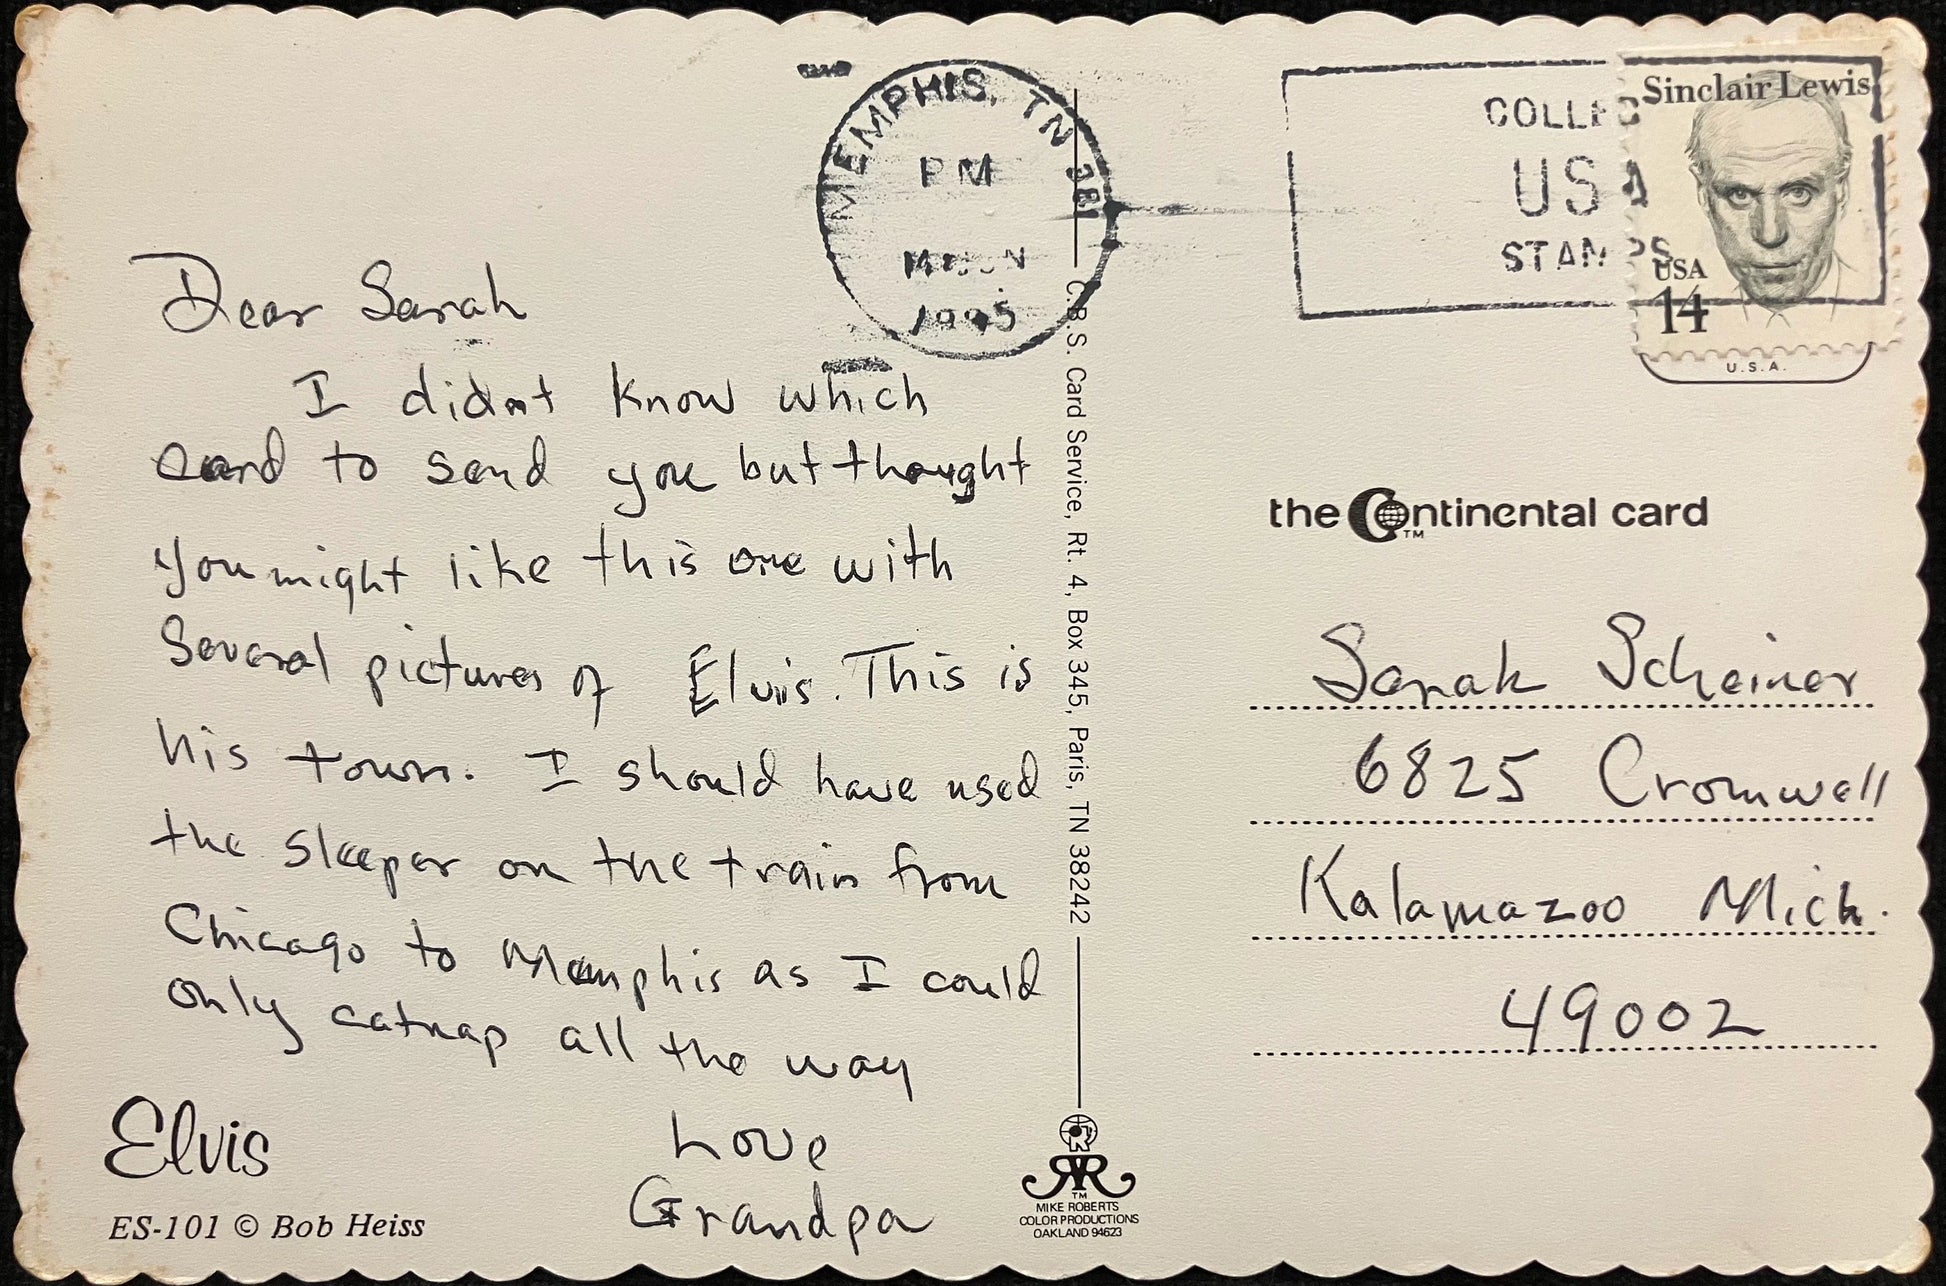 MEMPHIS, TN 381
PM
14 JUN
1995
COLLEC
USA
STAMPS
Sinclair Lewis
USA
14
U.S.A.
Dear Sarah
I didnt know which
card to send you but thought
you might like this one with
several pictures of Elvis. This is
his town. I should have used
the sleeper on the train from
Chicago to Memphis as I could
only catnap all the way
Love
Grandpa
Elvis
ES-101 © Bob Heiss
C.B.S. Card Service, Rt. 4, Box 345, Paris, TN 38242
TM
MIKE ROBERTS
COLOR PRODUCTIONS
OAKLAND 94623
the Continental card
TM
Sarah Scheiner
6825 Cromwell
Kalamazoo Mich.
49002